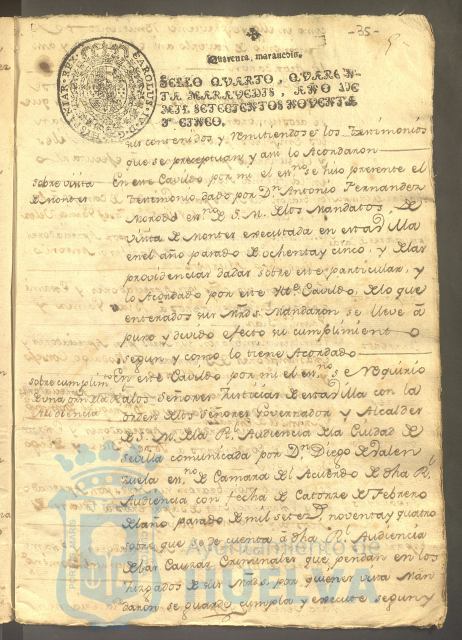 -35-
Quarenta maravedis.
SELLO QVARTO, QVAREN-
TA MARAVEDIS, AÑO DE
MIL SETECIENTOS NOVENTA
Y CINCO.
sus contenidos y remitiendose los Testimonios
que se preceptuan y asi lo Acordaron
sobre visita
de montes
En este Cavildo por mi el enno. se hiso presente el
testimonio dado por Dn. Antonio Fernandez
enno. de S. M. de los Mandatos de
visita de Montes executada en esta Villa
en el año pasado de ochenta y cinco, y de las
providencias dadas sobre este particular, y
lo Acordado por este Cavildo, de lo que
enterados sus Mrds. Mandaron se lleve â
puro y devido efecto su cumplimiento
segun y como lo tiene Acordado
sobre cumplim
Audiencia
En este Cavildo por mi el enno. se Requirio
a los Señores Justicias de esta Villa con la
orden de los Señores Governador y Alcaldes
de S. M. de la Rl. Audiencia de la Ciudad de
Sevilla comunicada por Dn. Diego de Valen
zuela enno. de Camara del Acuerdo de dha Rl.
Audiencia con fecha de Catorse de Febrero
del año pasado de mil setez. noventa y quatro
sobre que se de cuenta â dha Rl. Audiencia
de las Causas Creminales que pendan en los
Jusgados de sus Mrds. por quienes vista Man
daron se guarde cumpla y execute segun y
Ayuntamiento de
HUELVA